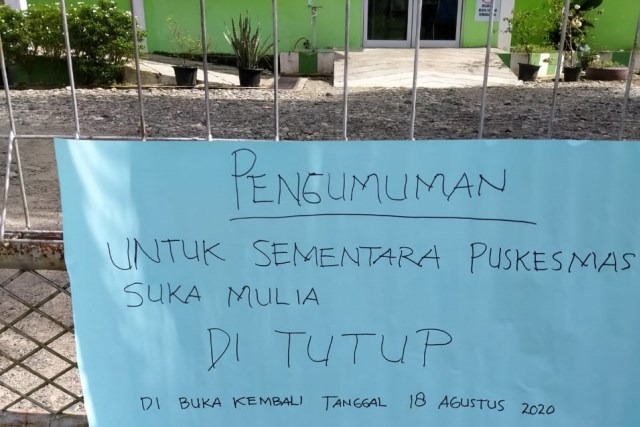 PENGUMUMAN
UNTUK SEMENTARA PUSKESMAS
SUKA MULIA
DI TUTUP
DI BUKA KEMBALI TANGGAL 18 AGUSTUS 2020